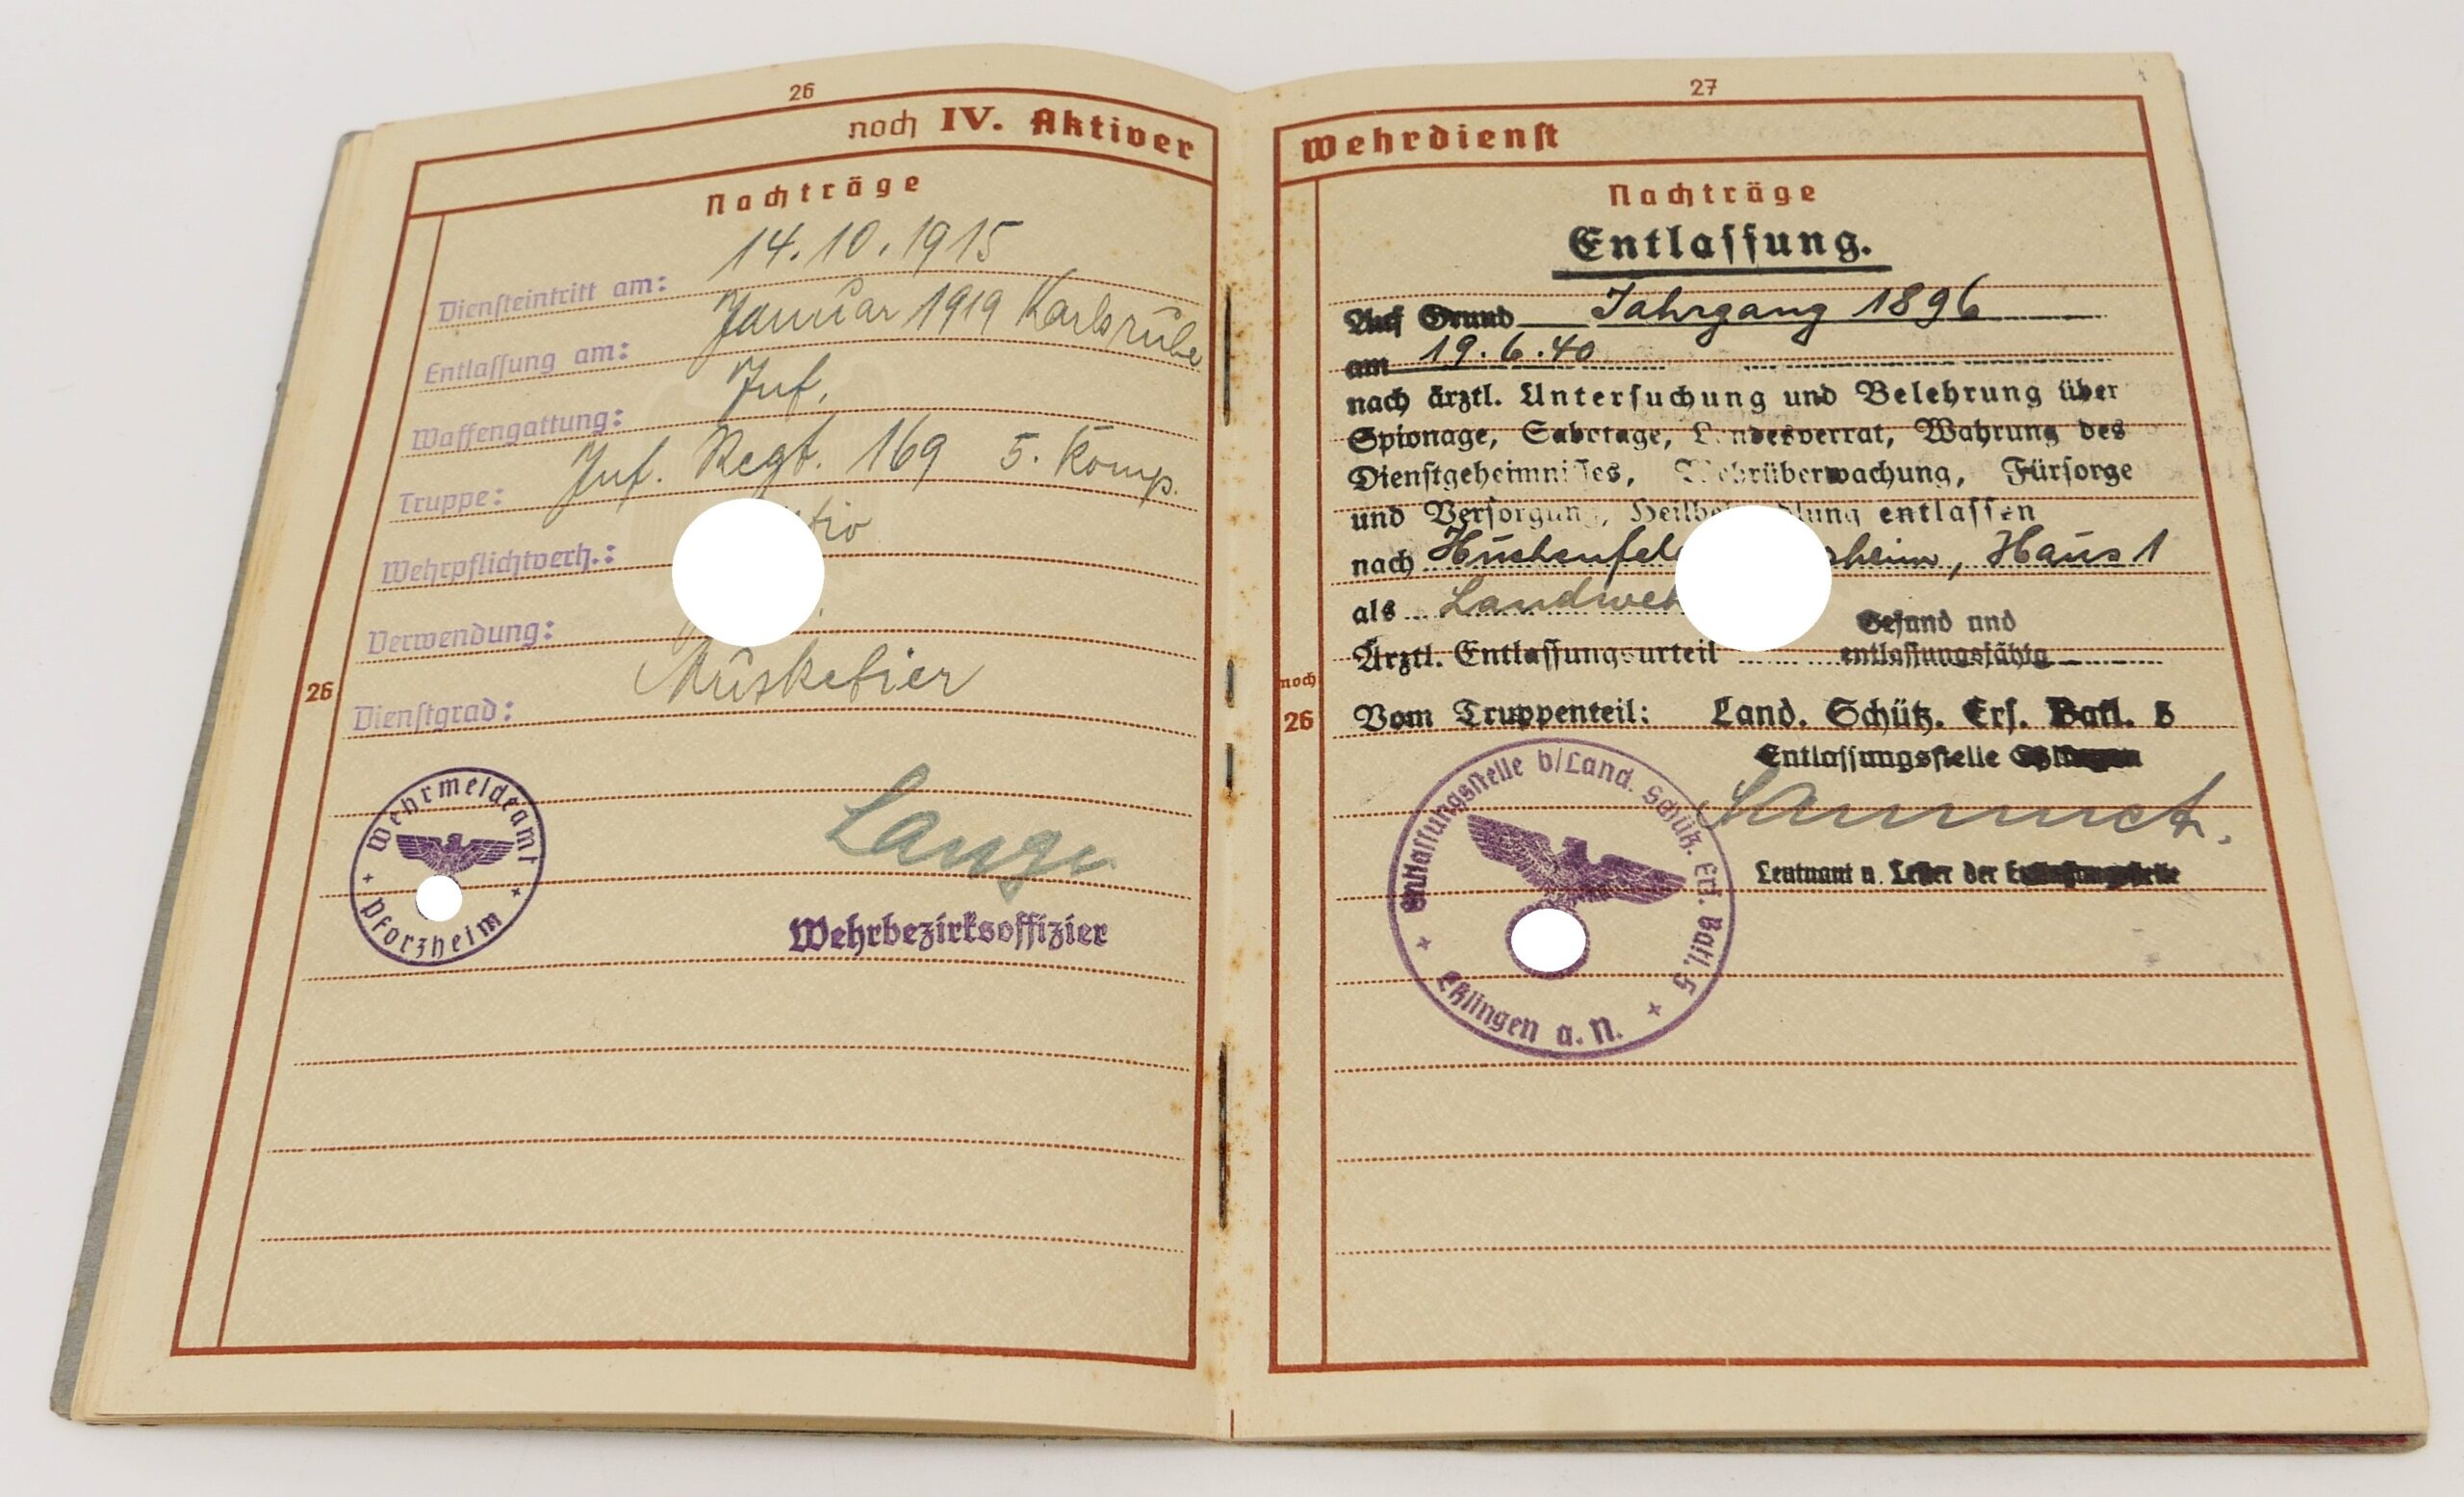 26
noch IV. Aktiver
Nachträge
Diensteintritt am: 14.10.1915
Entlassung am: Januar 1919 Karlsruhe
Waffengattung: Inf.
Truppe: Inf. Regt. 169 5. Komp.
Wehrpflichtverh.:
Verwendung:
26
Dienstgrad: Musketier
Wehrmeldeamt
Pforzheim
Lange
Wehrbezirksoffizier
27
Wehrdienst
Nachträge
Entlassung.
Auf Grund Jahrgang 1896
am 19.6.40
nach ärztl. Untersuchung und Belehrung über
Spionage, Sabotage, Landesverrat, Wahrung des
Dienstgeheimnisses, Wehrüberwachung, Fürsorge
und Versorgung, Heilbehandlung entlassen
nach Huchenfeld heim, Haus 1
als Landweh
Gesund und
Ärztl. Entlassungsurteil entlassungsfähig
noch
26
Vom Truppenteil: Land. Schütz. Ers. Batl. 5
Entlassungsstelle Eßlingen
Leutnant u. Leiter der Entlassungsstelle
Entlassungsstelle b/Land. Schütz. Ers. Batl. 5
Eßlingen a. N.